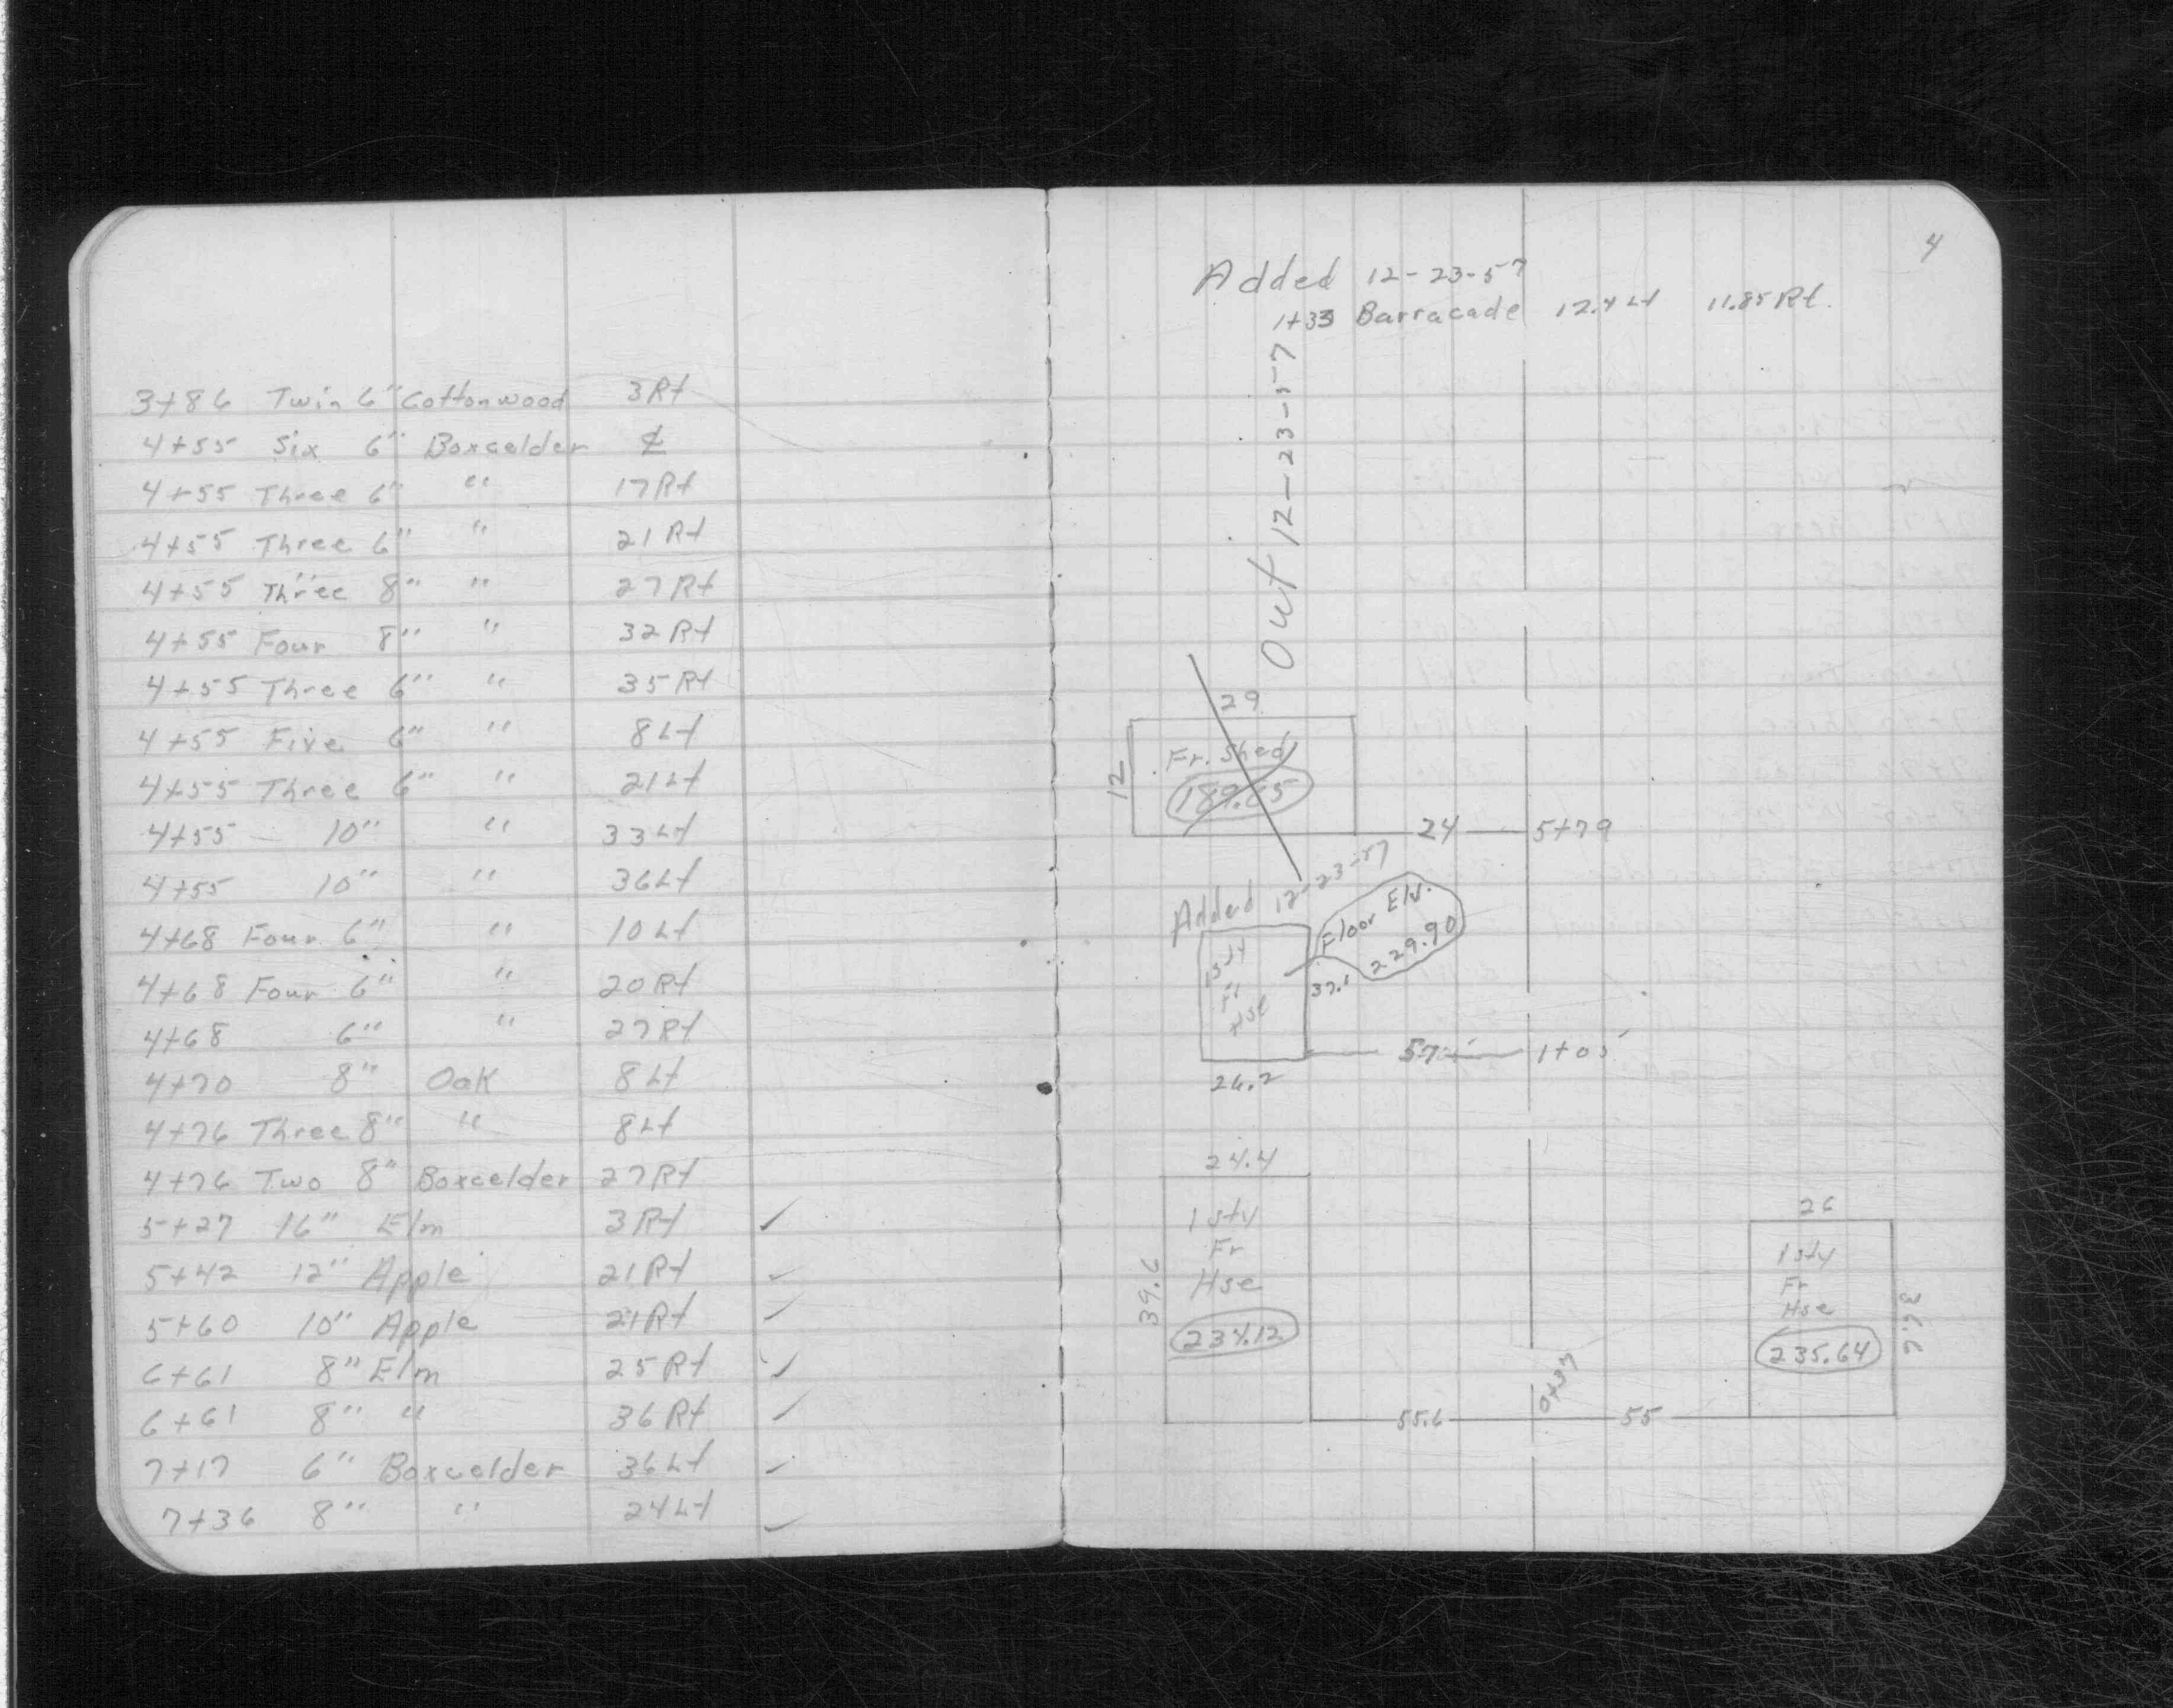 3+86 Twin 6" Cottonwood 3 Rt
4+55 Six 6" Boxcelder ℄
4+55 Three 6" " 17 Rt
4+55 Three 6" " 21 Rt
4+55 Three 8" " 27 Rt
4+55 Four 8" " 32 Rt
4+55 Three 6" " 35 Rt
4+55 Five 6" " 8 Lt
4+55 Three 6" " 21 Lt
4+55 10" " 33 Lt
4+55 10" " 36 Lt
4+68 Four 6" " 10 Lt
4+68 Four 6" " 20 Rt
4+68 6" " 27 Rt
4+70 8" Oak 8 Lt
4+76 Three 8" " 8 Lt
4+76 Two 8" Boxcelder 27 Rt
5+27 16" Elm 3 Rt ✓
5+42 12" Apple 21 Rt ✓
5+60 10" Apple 21 Rt ✓
6+61 8" Elm 25 Rt ✓
6+61 8" " 36 Rt ✓
7+17 6" Boxcelder 36 Lt ✓
7+36 8" " 24 Lt ✓
4
Added 12-23-57
1+33 Barracade 12.4 Lt 11.85 Rt.
Out 12-23-57
29
12
Fr. Shed
189.65
24 5+79
Added 12-23-57
Floor Elv.
229.90
1 sty
Fr
Hse
37.1
57 1+05
26.2
24.4
1 sty
Fr
Hse
39.6
234.12
26
1 sty
Fr
Hse
36.6
235.64
55.6
0+33
55